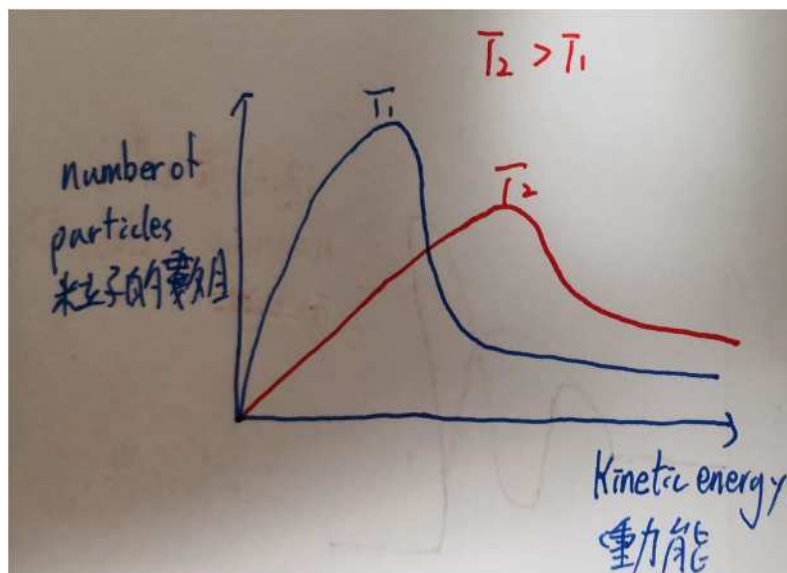 T₂ > T₁
T₁
T₂
number of
particles
粒子的數目
Kinetic energy
動能